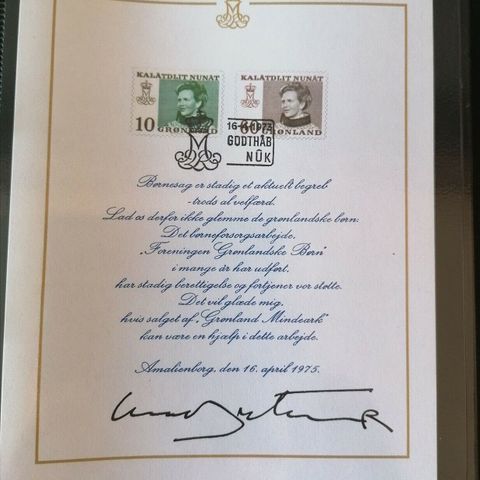 KALÂTDLIT NUNÂT KALÂTDLIT NUNÂT
10 GRØNLAND 60 GRØNLAND
16-4-1975
GODTHÅB
NÛK
Børnesag er stadig et aktuelt begreb
-trods al velfærd.
Lad os derfor ikke glemme de grønlandske børn.
Det børneforsorgsarbejde,
„Foreningen Grønlandske Børn"
i mange år har udført,
har stadig berettigelse og fortjener vor støtte.
Det vil glæde mig,
hvis salget af „Grønland Mindeark"
kan være en hjælp i dette arbejde.
Amalienborg, den 16. april 1975.